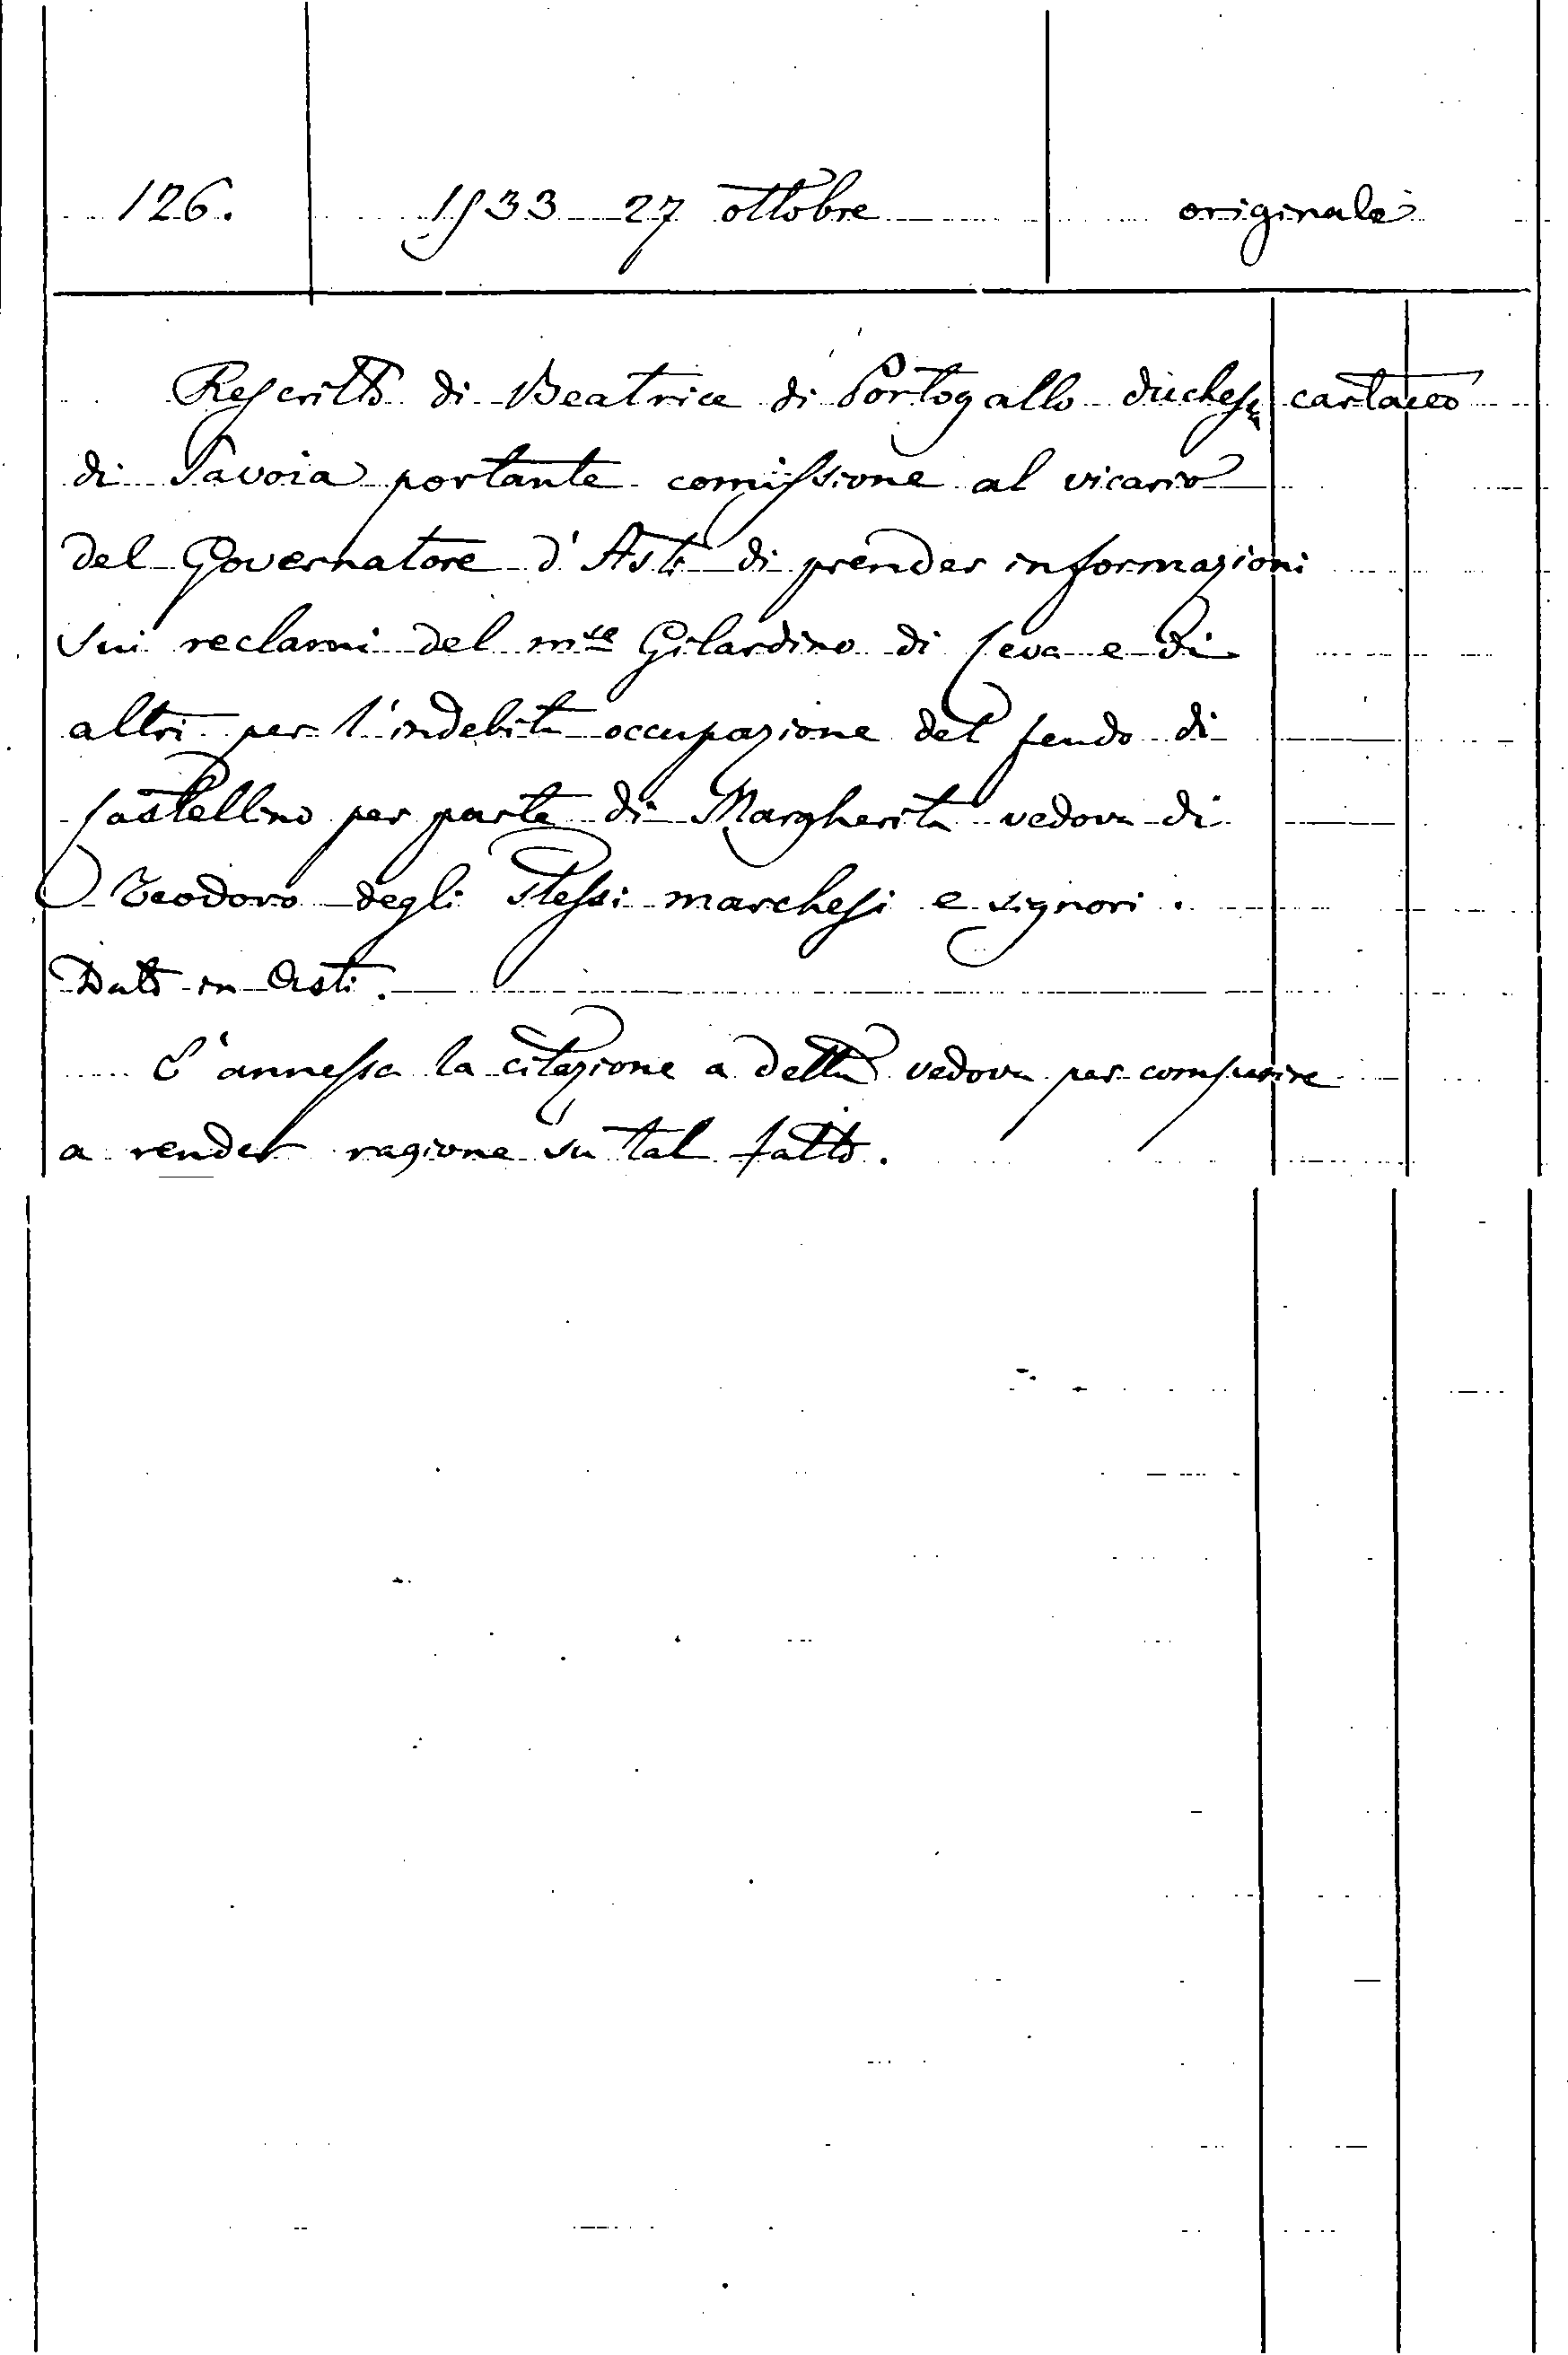 126. 1533 27 ottobre originale
Rescritto di Beatrice di Portogallo duchessa cartaceo
di Savoia portante comissione al vicario
del Governatore d'Asti di prender informazioni
sui reclami del m.se Gilardino di Ceva e di
altri per l'indebita occupazione del feudo di
Castellino per parte di Margherita vedova di
Teodoro degli stessi marchesi e signori.
Dato in Asti.
E' annessa la citazione a detta vedova per comparire
a render ragione su tal fatto.